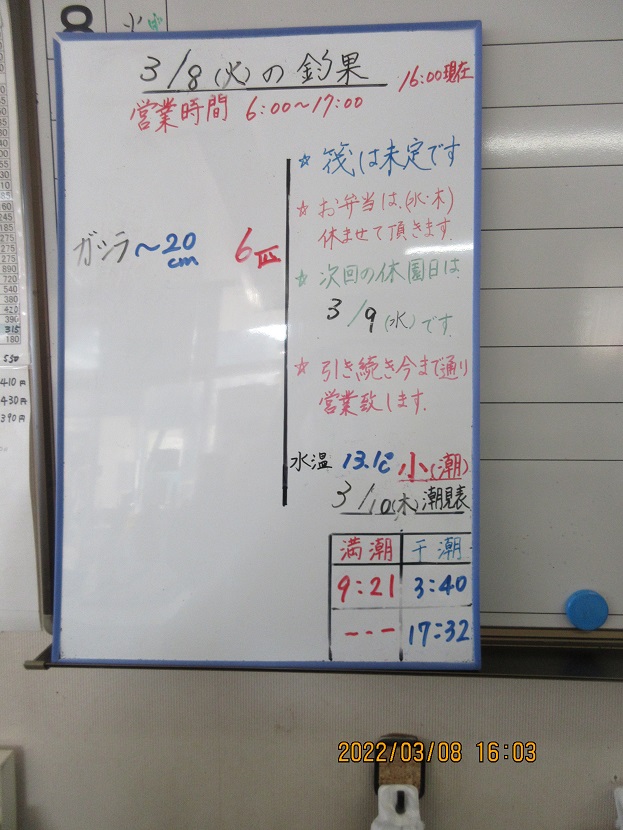 3/8(火)の釣果 16:00現在
営業時間 6:00〜17:00
ガシラ〜20cm 6匹
☆ 筏は未定です
☆ お弁当は、(水・木)
休ませて頂きます。
☆ 次回の休園日は、
3/9(水)です。
☆ 引き続き今まで通り
営業致します。
水温 13.1℃ 小(潮)
3/10(木)潮見表
満潮 干潮
9:21 3:40
--- 17:32
315
180
410円
430円
390円
2022/03/08 16:03